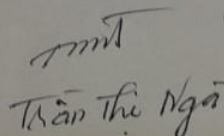 Trần Thị Ngà